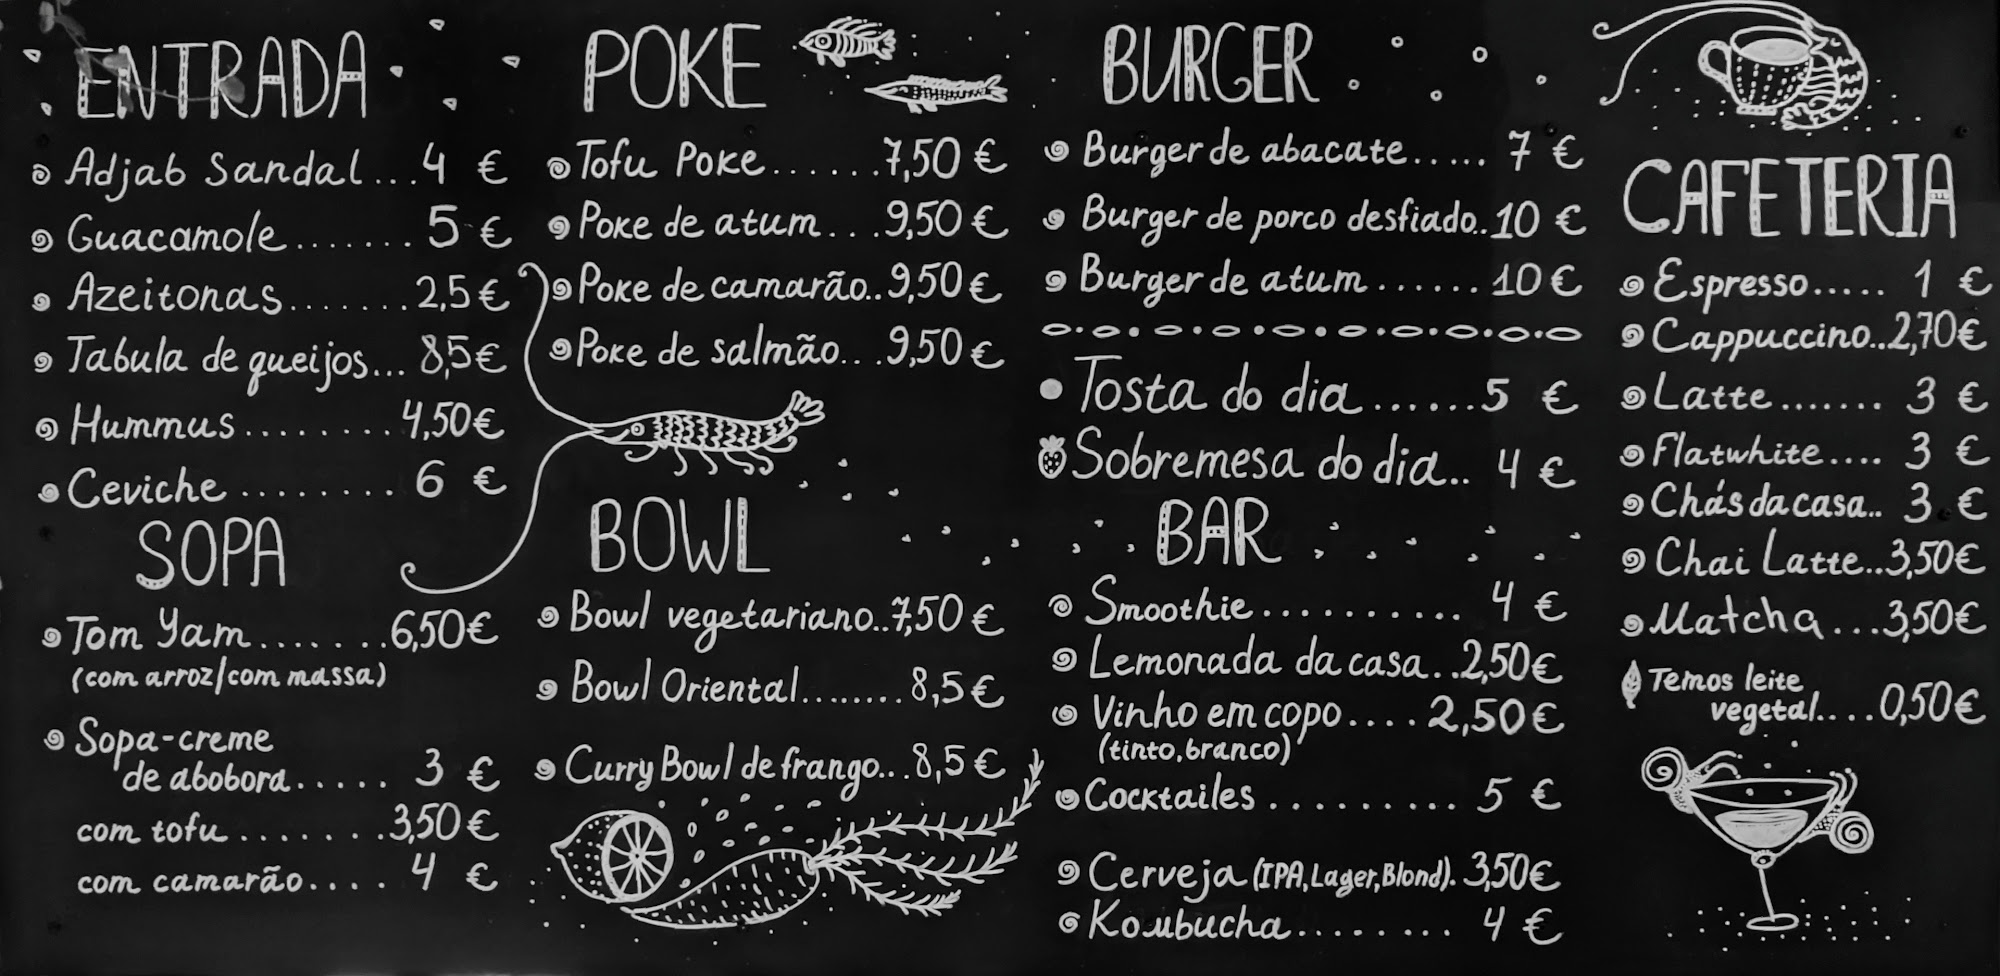 ENTRADA
Adjab Sandal...4 €
Guacamole.......5 €
Azeitonas.......2,5€
Tabula de queijos...8,5€
Hummus.........4,50€
Ceviche.........6 €
SOPA
Tom Yam.......6,50€
(com arroz/com massa)
Sopa-creme
de abobora.....3 €
com tofu.......3,50€
com camarão....4 €
POKE
Tofu Poke......7,50€
Poke de atum...9,50€
Poke de camarão..9,50€
Poke de salmão...9,50€
BOWL
Bowl vegetariano..7,50€
Bowl Oriental........8,5€
Curry Bowl de frango...8,5€
BURGER
Burger de abacate.....7 €
Burger de porco desfiado..10 €
Burger de atum......10€
Tosta do dia......5 €
Sobremesa do dia..4 €
BAR
Smoothie..........4 €
Lemonada da casa..2,50€
Vinho em copo....2,50€
(tinto,branco)
Cocktailes.........5 €
Cerveja (IPA,Lager,Blond).3,50€
Kombucha........4 €
CAFETERIA
Espresso.....1 €
Cappuccino..2,70€
Latte.......3 €
Flatwhite....3 €
Chás da casa..3 €
Chai Latte..3,50€
Matcha...3,50€
Temos leite
vegetal....0,50€